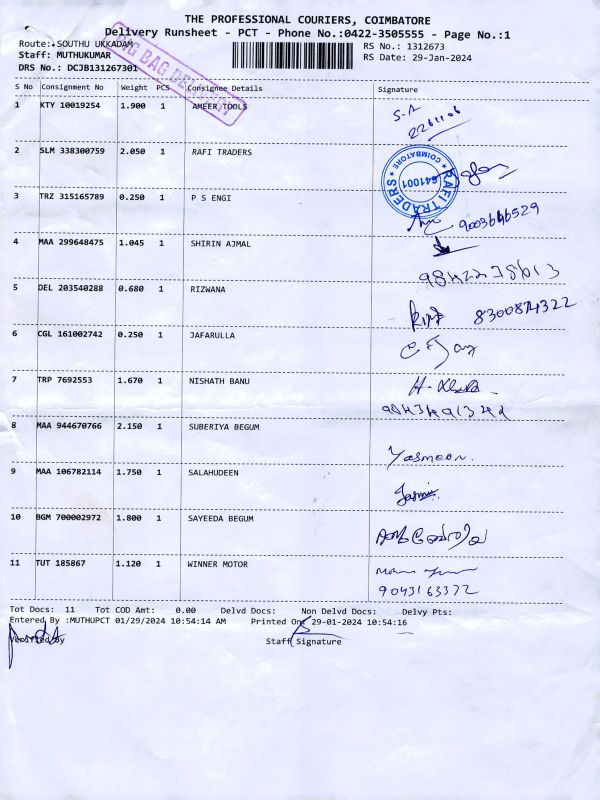 THE PROFESSIONAL COURIERS, COIMBATORE
Delivery Runsheet - PCT - Phone No.:0422-3505555 - Page No.:1
Route: SOUTHU UKKADAM
RS No.: 1312673
Staff: MUTHUKUMAR
RS Date: 29-Jan-2024
DRS No.: DCJB131267301
BIG BAG DELIVERY
S No Consignment No Weight PCS Consignee Details Signature
1 KTY 10019254 1.900 1 AMEER TOOLS
2 SLM 338300759 2.050 1 RAFI TRADERS
RAFI TRADERS COIMBATORE 641001
3 TRZ 315165789 0.250 1 P S ENGI
4 MAA 299648475 1.045 1 SHIRIN AJMAL
5 DEL 203540288 0.680 1 RIZWANA
8300874322
6 CGL 161002742 0.250 1 JAFARULLA
7 TRP 7692553 1.670 1 NISHATH BANU
8 MAA 944670766 2.150 1 SUBERIYA BEGUM
Yasmeen.
9 MAA 106782114 1.750 1 SALAHUDEEN
10 BGM 700002972 1.800 1 SAYEEDA BEGUM
11 TUT 185867 1.120 1 WINNER MOTOR
9043163372
Tot Docs: 11 Tot COD Amt: 0.00 Delvd Docs: Non Delvd Docs: Delvy Pts:
Entered By :MUTHUPCT 01/29/2024 10:54:14 AM Printed On: 29-01-2024 10:54:16
Verified By Staff Signature